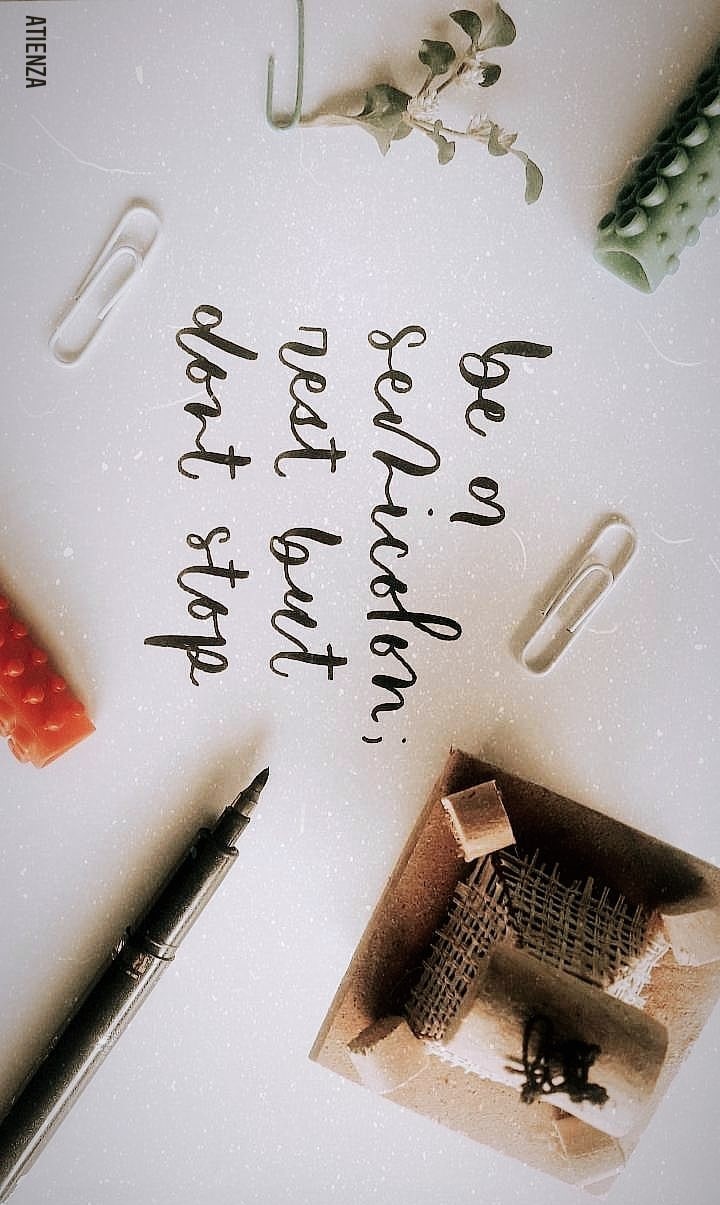 be a
semicolon;
rest but
dont stop
ATIENZA